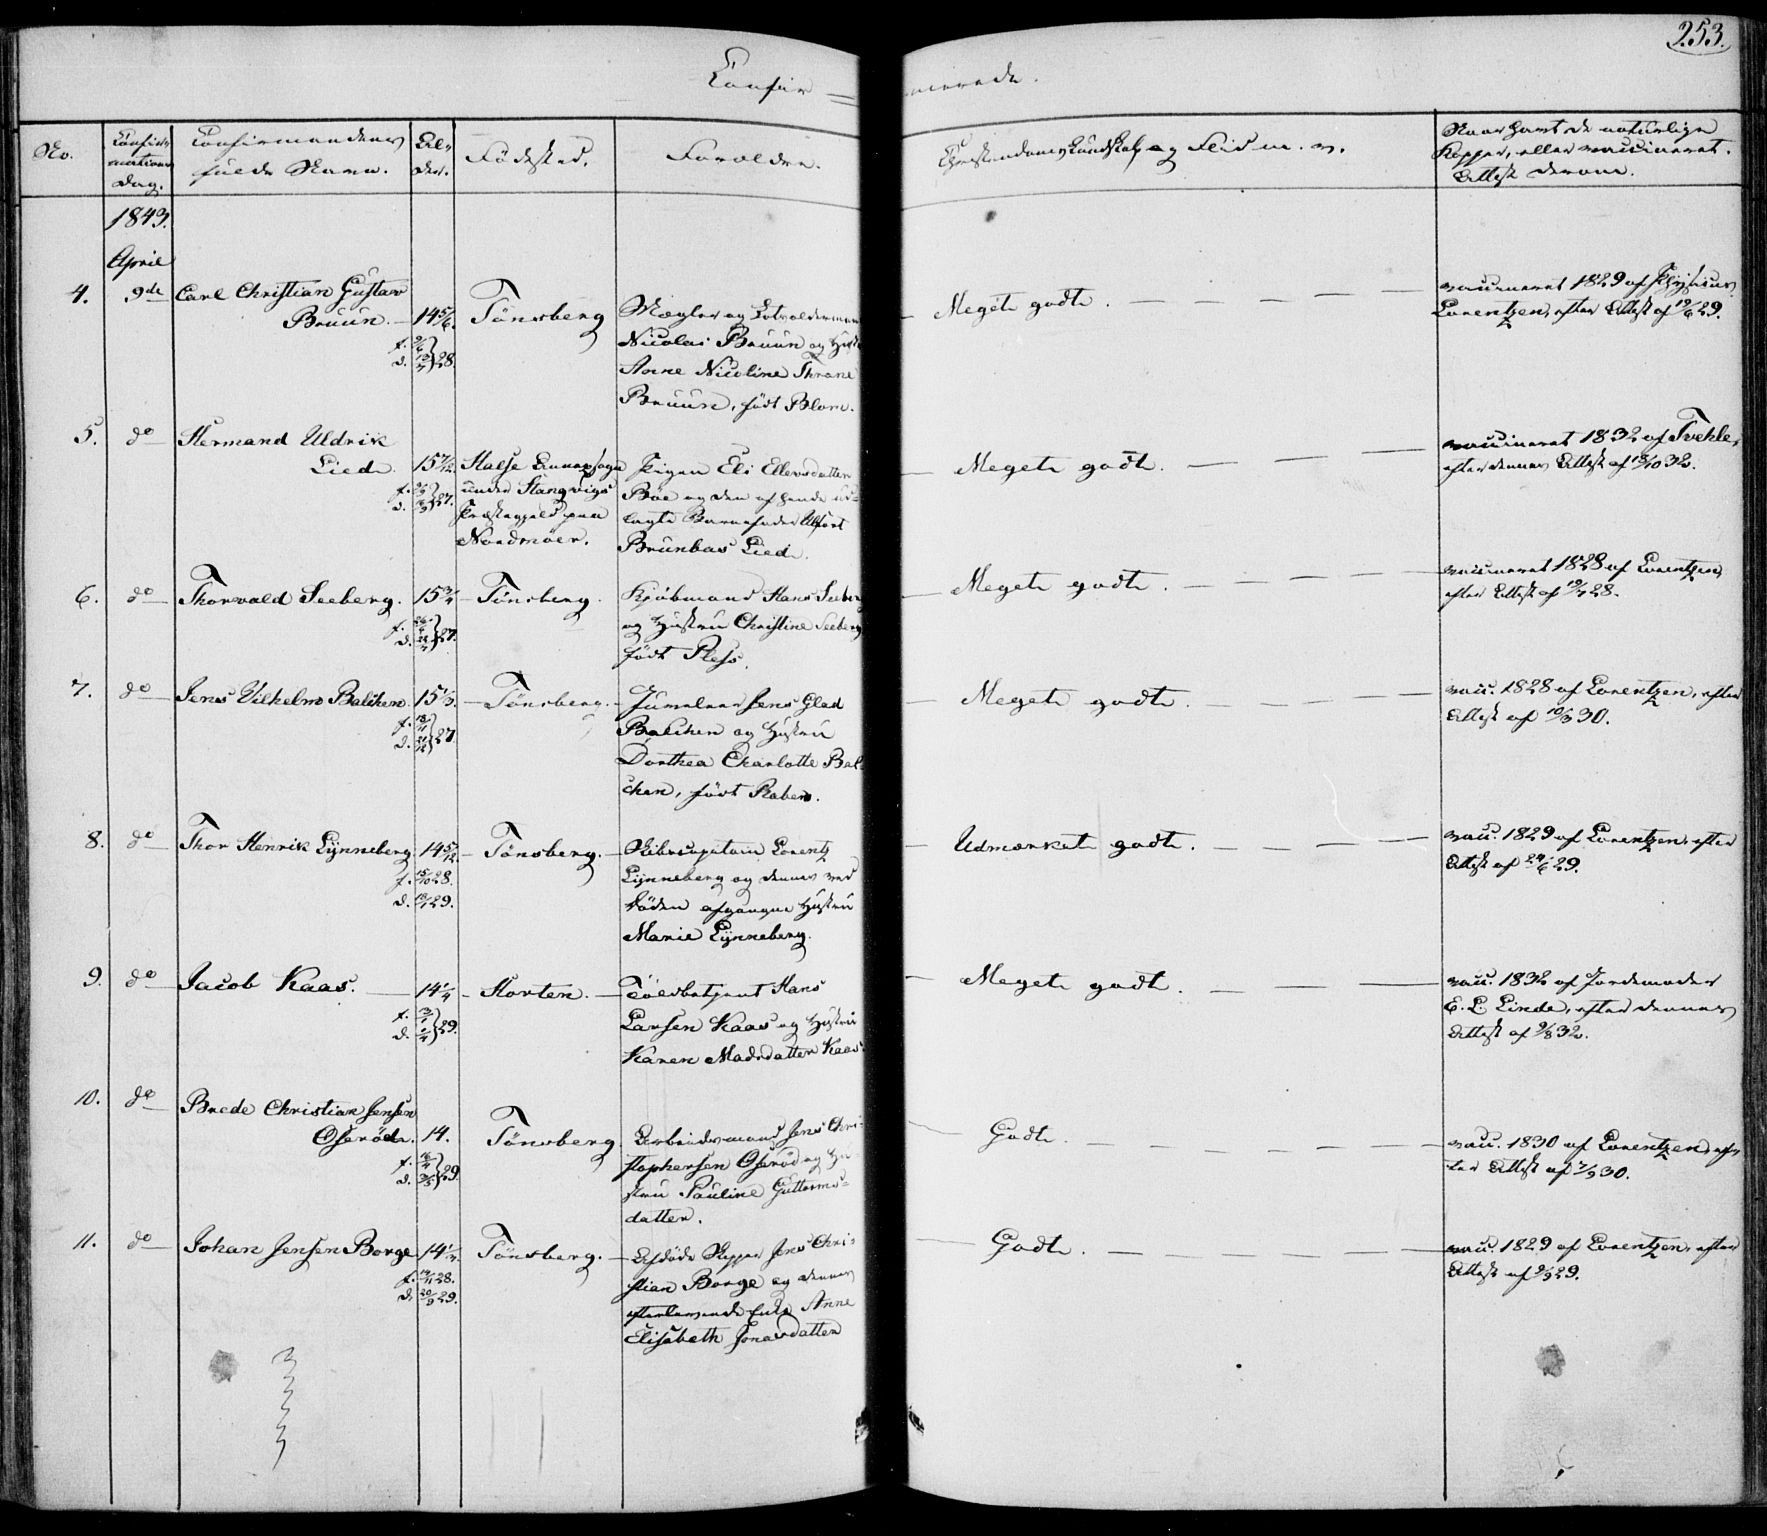 253.
Confir = merede.
No.
Confir-
mations
Dag.
Confirmandens
fulde Navn.
Al-
der.
Födested.
Forældre.
Christendoms Kundskab og Flid m. v.
Naar havt de naturlige
Kopper, eller vaccineret.
Attest derom.
1843.
April
4. 9de Carl Christian Gustav
Bruun. 14 5/6. Tönsberg
f.
d. 28.
Mægler og
Nicolai Bruun og
Anne Nicoline Thrane
Bruun, födt Blom.
Meget godt.
vaccineret 1829 af Physicus
Lorentzen, efter Attest af 19/6 29.
5. do Hermand Uldrik
Lied. 15 7/12. Halse Annexsogn
under Stangvigs
Præstegjeld paa
Nordmöer.
f.
d. 27.
Pigen Eli Ellevsdatter
Böe og den af hende ud-
lagte Barnefader
Brunbas Lied.
Meget godt.
vaccineret 1832 af Tvehle,
efter dennes Attest af 13/10 32.
6. do Thorvald Seeberg. 15 3/4 Tönsberg.
f.
d. 27.
Kjöbmand Hans Seeberg
og Hustru Christine Seeberg
födt Pless.
Meget godt.
vaccineret 1828 af Lorentzen,
efter Attest af 19/7 28.
7. do Jens Vilhelm Balchen 15 1/3. Tönsberg.
f.
d. 27.
Juveleer Jens Glad
Balchen og Hustru
Dorthea Charlotte Bal-
chen, födt Raben.
Meget godt.
vacc. 1828 af Lorentzen, efter
Attest af 10/3 30.
8. do Thor Henrik Lynneberg 14 5/12 Tönsberg.
f. 15/10 28.
d. 29.
Skibscapitain Lorentz
Lynneberg og dennes ved
Döden afgangne Hustru
Marie Lynneberg.
Udmærket godt.
vacc. 1829 af Lorentzen, efter
Attest af 24/6 29.
9. do Jacob Kaas. 14 1/4 Horten.
f.
d. 29.
Toldbetjent Hans
Larsen Kaas og Hustru
Karen Madsdatter Kaas
Meget godt.
vacc. 1832 af Jordemoder
E. L. Linde, efter dennes
Attest af 9/8 32.
10. do Brede Christian Jensen
Oseröd. 14. Tönsberg
f.
d. 29.
Arbeidsmand Jens Chri-
stophersen Oseröd og Hu-
stru Pauline Guttorms-
datter.
Godt.
vacc. 1830 af Lorentzen, ef-
ter Attest af 7/9 30.
11. do Johan Jensen Borge 14 1/2. Tönsberg.
f. 28.
d. 29.
Afdöde Skipper Jens Chri-
stian Borge og dennes
efterlevende Enke Anne
Elisabeth Jonasdatter
Godt.
vacc. 1829 af Lorentzen, efter
Attest af 9/9 29.